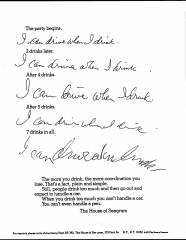 The party begins.
I can drive when I drink.
2 drinks later.
I can drive when I drink.
After 4 drinks.
I can drive when I drink
After 5 drinks.
I can driv when I
7 drinks in all.
I can
The more you drink, the more coordination you
lose. That's a fact, plain and simple.
Still, people drink too much and then go out and
expect to handle a car.
When you drink too much you can't handle a car.
You can't even handle a pen.
The House of Seagram